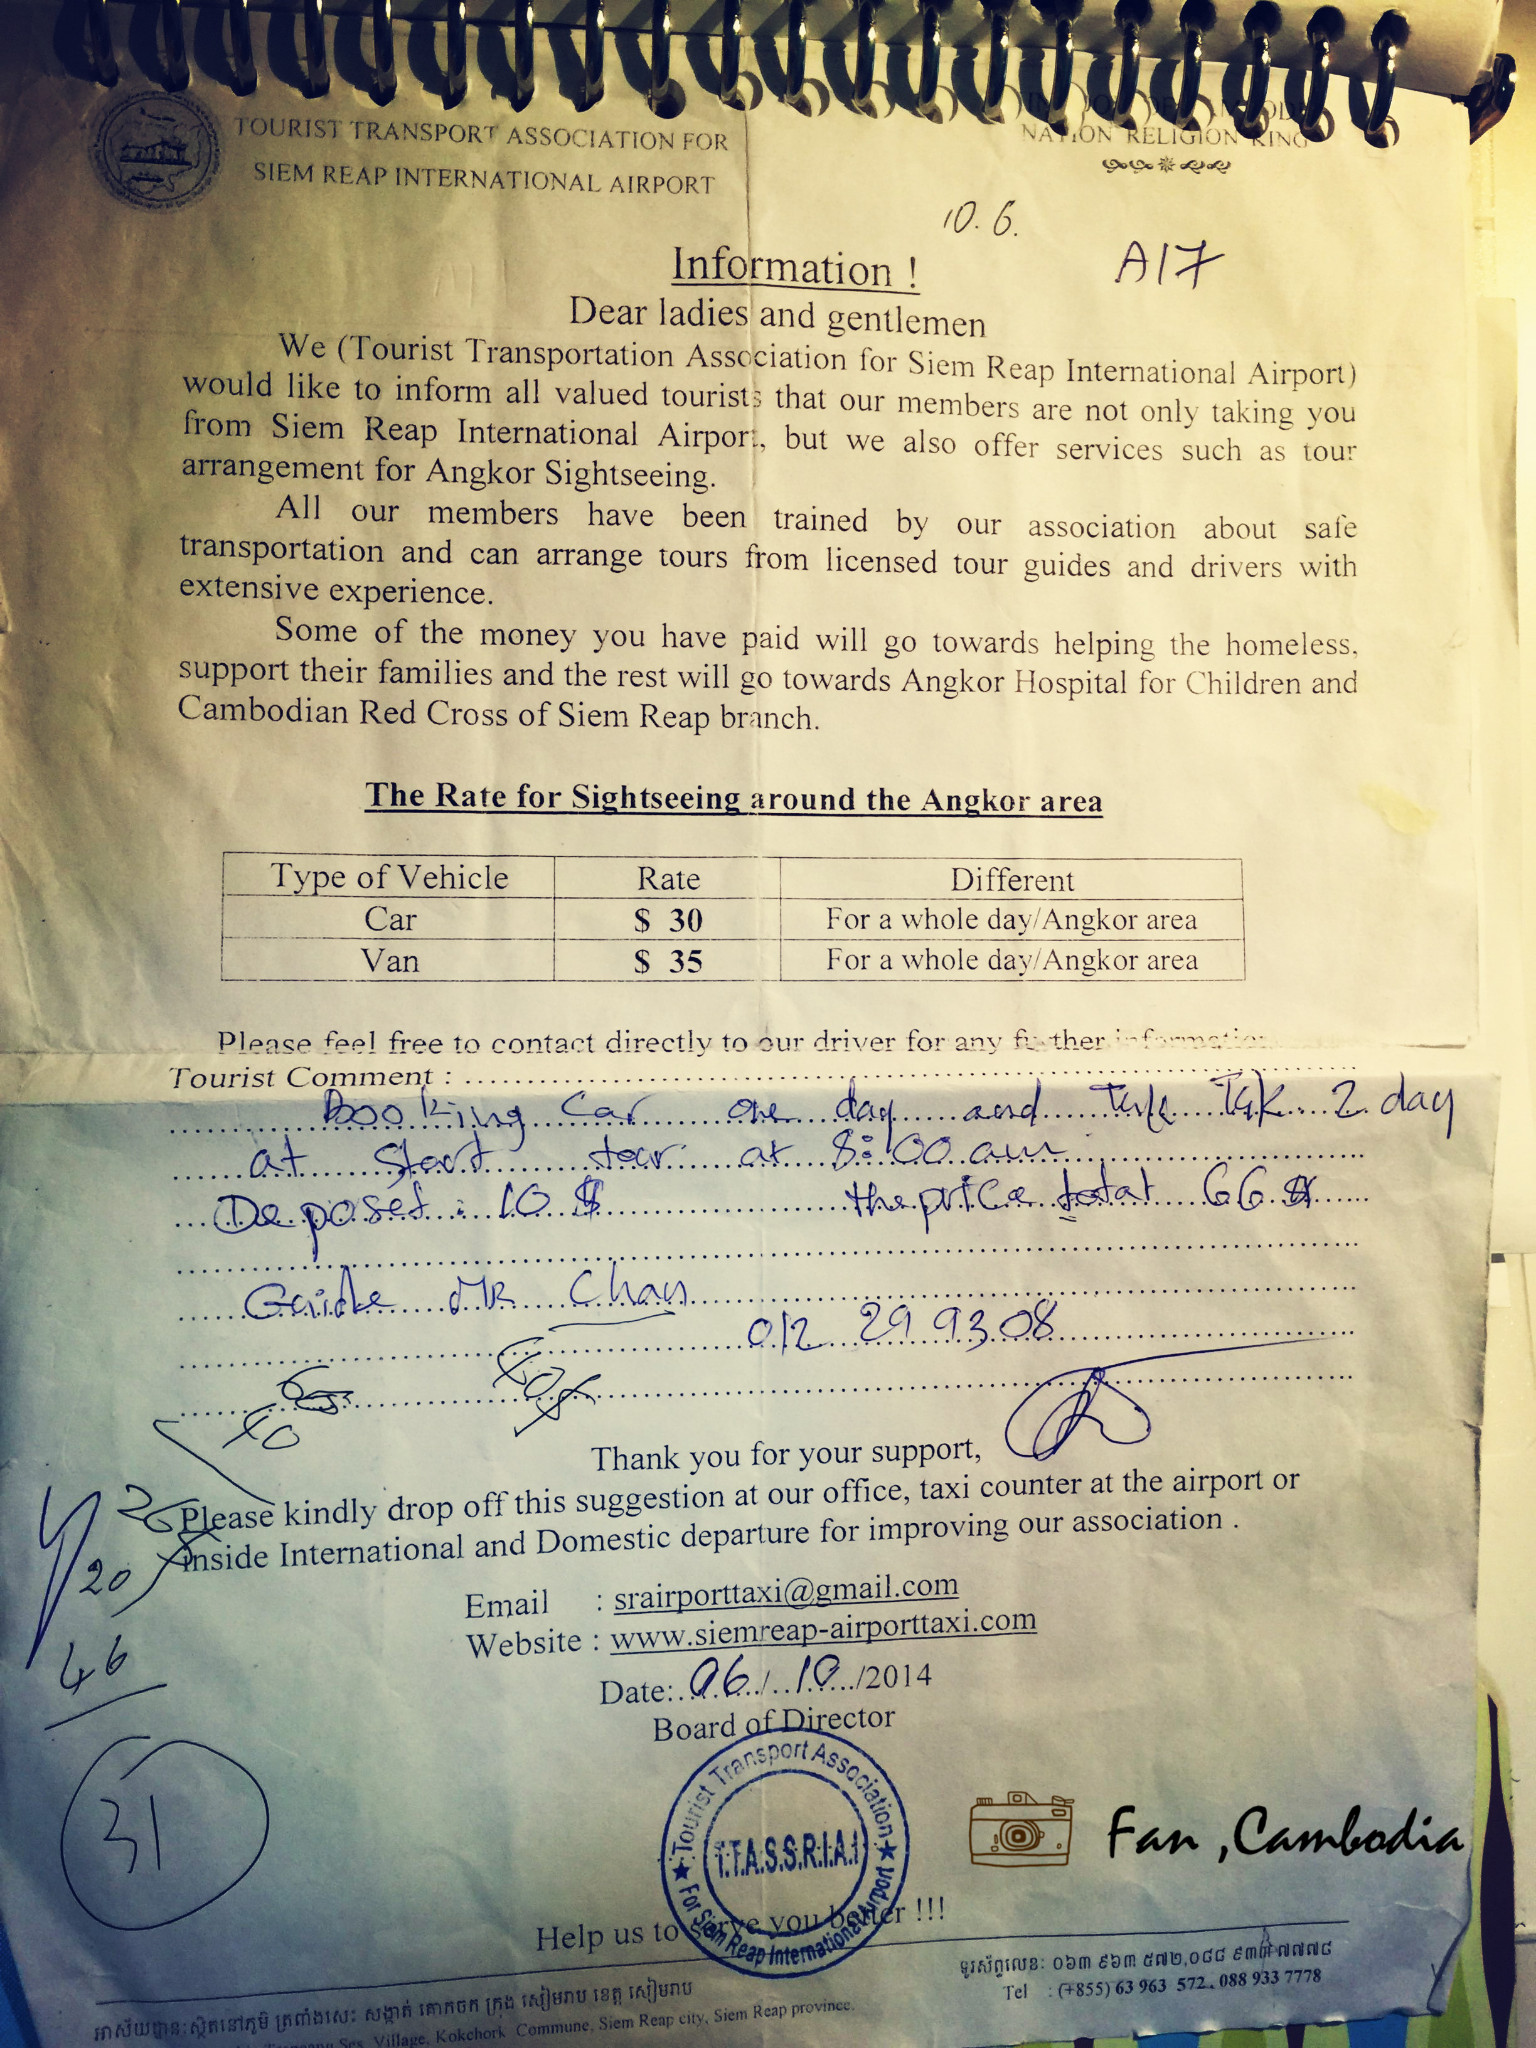 TOURIST TRANSPORT ASSOCIATION FOR
SIEM REAP INTERNATIONAL AIRPORT
NATION RELIGION KING
10.6.
A17
Information !
Dear ladies and gentlemen
We (Tourist Transportation Association for Siem Reap International Airport)
would like to inform all valued tourists that our members are not only taking you
from Siem Reap International Airport, but we also offer services such as tour
arrangement for Angkor Sightseeing.
All our members have been trained by our association about safe
transportation and can arrange tours from licensed tour guides and drivers with
extensive experience.
Some of the money you have paid will go towards helping the homeless,
support their families and the rest will go towards Angkor Hospital for Children and
Cambodian Red Cross of Siem Reap branch.
The Rate for Sightseeing around the Angkor area
Type of Vehicle Rate Different
Car $ 30 For a whole day/Angkor area
Van $ 35 For a whole day/Angkor area
Please feel free to contact directly to our driver for any further information
Tourist Comment :
Booking car one day and Tuk Tuk 2 day
at start tour at 8:00 am
Deposet : 10 $ the price total 66 $
Guide MR Chan
012 29 93 08
Thank you for your support,
Please kindly drop off this suggestion at our office, taxi counter at the airport or
inside International and Domestic departure for improving our association .
20
46
Email : srairporttaxi@gmail.com
Website : www.siemreap-airporttaxi.com
Date: 06/10/2014
Board of Director
31
Tourist Transport Association
T.T.A.S.S.R.I.A.I
For Siem Reap International Airport
Fan ,Cambodia
Help us to serve you better !!!
អាស័យដ្ឋាន:ស្ថិតនៅភូមិ ត្រពាំងសេះ សង្កាត់ គោកចក ក្រុង សៀមរាប ខេត្ត សៀមរាប
ទូរស័ព្ទលេខ: ០៦៣ ៩៦៣ ៥៧២,០៨៨ ៩៣៣ ៧៧៧៨
Tel : (+855) 63 963 572 , 088 933 7778
Ses Village, Kokchork Commune, Siem Reap city, Siem Reap province.